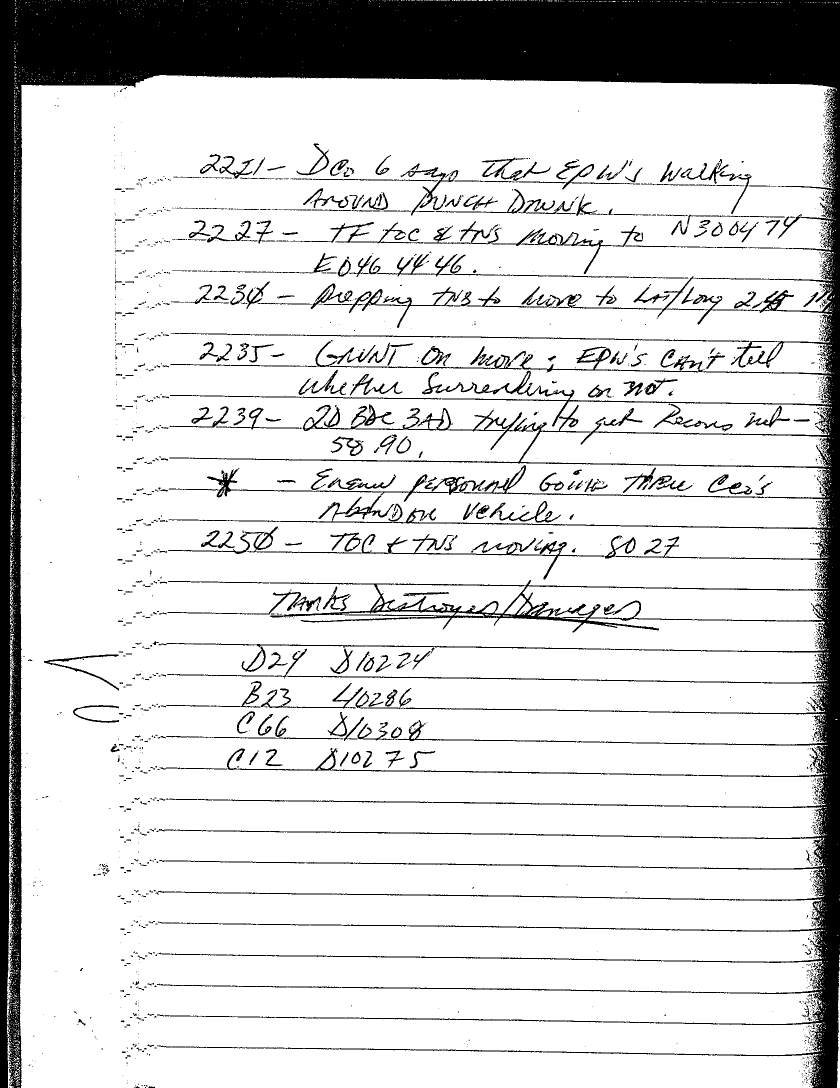 2221- DCo 6 says that EPW's walking
AROUND PUNCH DRUNK.
2227- TF TOC & TNS moving to N300474
E0464446.
2230 - prepping TNS to move to LAT/Long
2235- GRUNT On move; EPW's CAN'T tell
whether Surrendering or not.
2239- 2D BDE 3AD trying to get Recons net -
58.90.
* - Enemy personnel GOING THRU Co's
ABANDON vehicle.
2250- TOC & TNS moving. 8027
TANKS Destroyed/Damaged
D24 D10224
B23 L10286
C66 D10308
C12 D10275